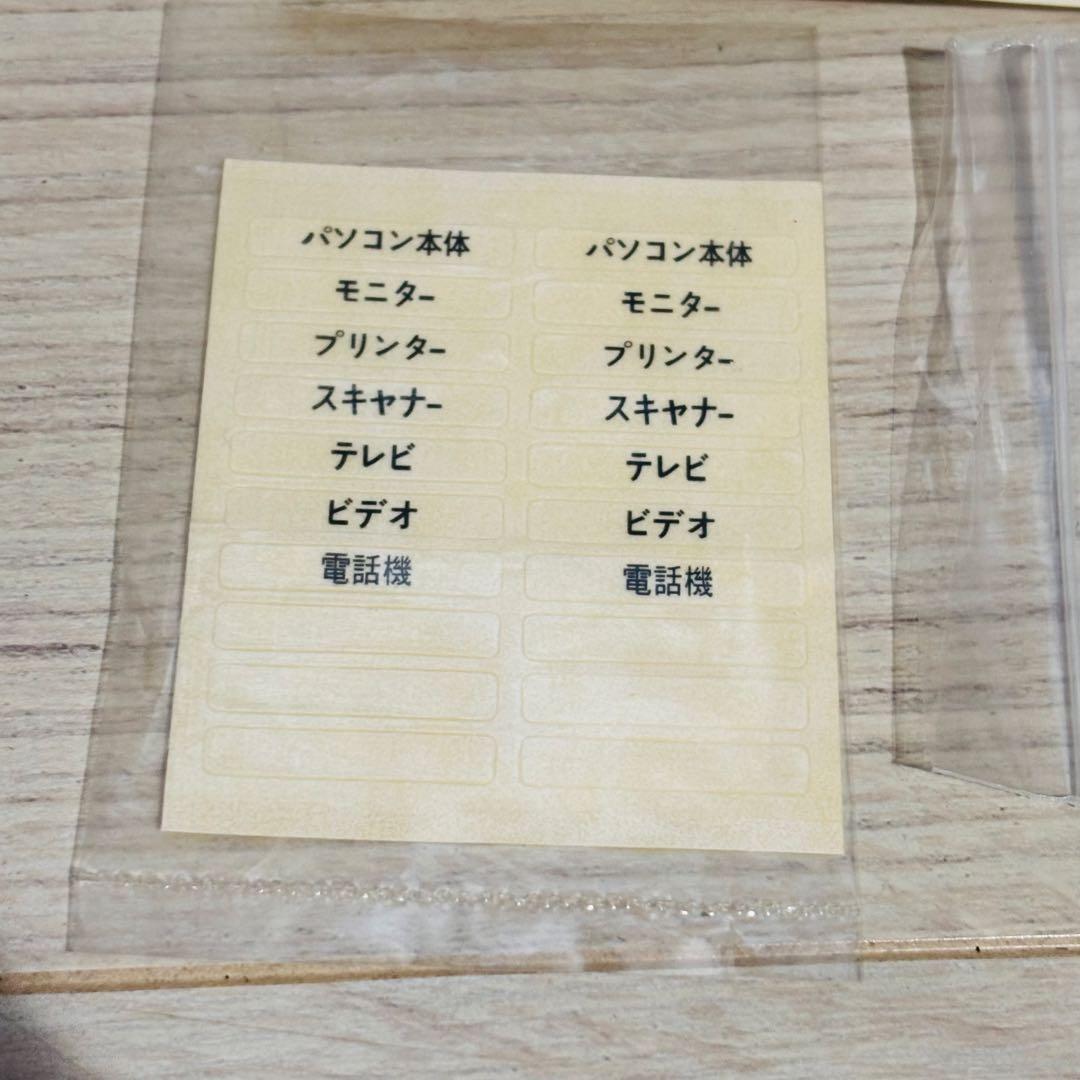 パソコン本体 パソコン本体
モニター モニター
プリンター プリンター
スキャナー スキャナー
テレビ テレビ
ビデオ ビデオ
電話機 電話機